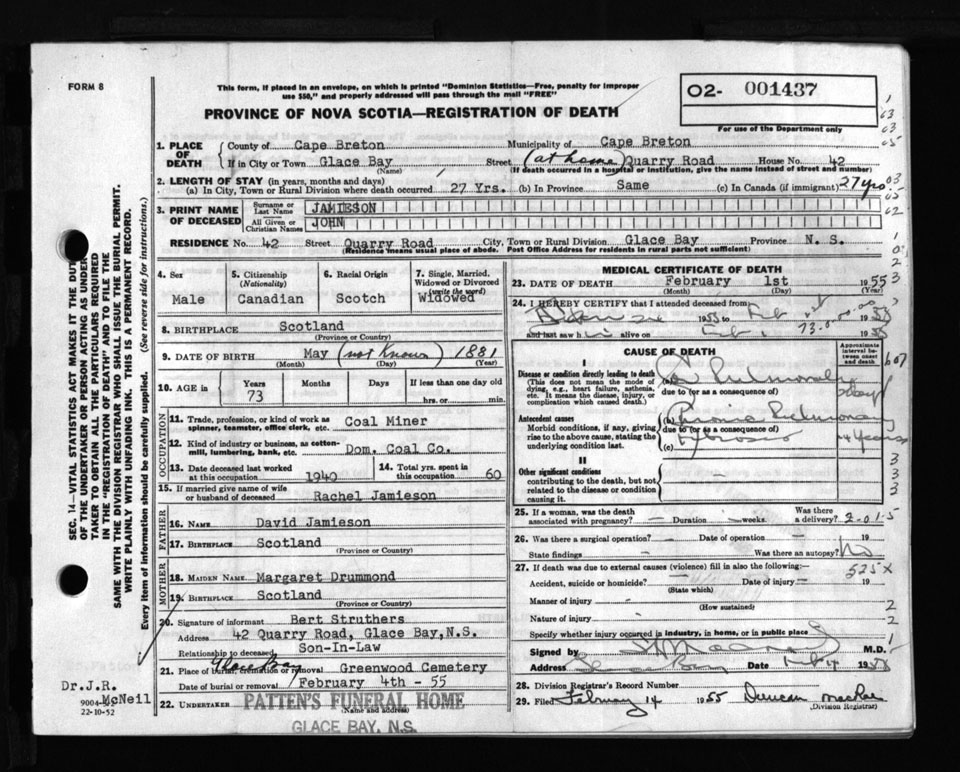 FORM 8
This form, if placed in an envelope, on which is printed "Dominion Statistics—Free, penalty for improper
use $50," and properly addressed will pass through the mail "FREE"
02- 001437
For use of the Department only
PROVINCE OF NOVA SCOTIA—REGISTRATION OF DEATH
1. PLACE OF DEATH
County of Cape Breton Municipality of Cape Breton
If in City or Town Glace Bay Street (at home) Quarry Road House No. 42
(Name) (If death occurred in a hospital or institution, give the name instead of street and number)
2. LENGTH OF STAY (in years, months and days)
(a) In City, Town or Rural Division where death occurred 27 Yrs. (b) In Province Same (c) In Canada (if immigrant) 27 yrs
3. PRINT NAME OF DECEASED
Surname or Last Name JAMIESON
All Given or Christian Names JOHN
RESIDENCE No. 42 Street Quarry Road City, Town or Rural Division Glace Bay Province N. S.
(Residence means usual place of abode. Post Office Address for residents in rural parts not sufficient)
4. Sex
Male
5. Citizenship
(Nationality)
Canadian
6. Racial Origin
Scotch
7. Single, Married,
Widowed or Divorced
(write the word)
Widowed
8. BIRTHPLACE Scotland
(Province or Country)
9. DATE OF BIRTH May (not Known) 1881
(Month) (Day) (Year)
10. AGE in
Years Months Days If less than one day old
73 hrs. or min.
11. Trade, profession, or kind of work as
spinner, teamster, office clerk, etc. Coal Miner
12. Kind of industry or business, as cotton-
mill, lumbering, bank, etc. Dom. Coal Co.
13. Date deceased last worked
at this occupation 1940
14. Total yrs. spent in
this occupation 60
15. If married give name of wife
or husband of deceased Rachel Jamieson
FATHER
16. NAME David Jamieson
17. BIRTHPLACE Scotland
(Province or Country)
MOTHER
18. MAIDEN NAME Margaret Drummond
19. BIRTHPLACE Scotland
(Province or Country)
20. Signature of informant Bert Struthers
Address 42 Quarry Road, Glace Bay, N.S.
Relationship to deceased Son-In-Law
21. Place of burial, cremation or removal Glace Bay Greenwood Cemetery
Date of burial or removal February 4th - 55
22. UNDERTAKER PATTEN'S FUNERAL HOME
(Name and address)
GLACE BAY, N.S.
MEDICAL CERTIFICATE OF DEATH
23. DATE OF DEATH February 1st 1955
(Month) (Day)
24. I HEREBY CERTIFY that I attended deceased from
1955 to Feb 1955
and last saw h alive on Feb. 1955
CAUSE OF DEATH
Approximate
interval between
onset and
death
I
Disease or condition directly leading to death
(This does not mean the mode of
dying, e.g., heart failure, asthenia,
etc. It means the disease, injury, or
complication which caused death.)
(a) Pulmonale
due to (or as a consequence of)
Antecedent causes
Morbid conditions, if any, giving
rise to the above cause, stating the
underlying condition last.
(b) Pulmonary
due to (or as a consequence of)
(c) Fibrosis years
II
Other significant conditions
contributing to the death, but not
related to the disease or condition
causing it.
25. If a woman, was the death
associated with pregnancy? — Duration — weeks.
Was there
a delivery?
26. Was there a surgical operation? — Date of operation — 19
State findings — Was there an autopsy? No
27. If death was due to external causes (violence) fill in also the following:—
525X
Accident, suicide or homicide? Date of injury 19
(State which)
Manner of injury
(How sustained)
Nature of injury
Specify whether injury occurred in industry, in home, or in public place
Signed by M.D.
Address Glace Bay Date Feb 4 1955
28. Division Registrar's Record Number
29. Filed February 14 1955 Duncan MacRae
(Division Registrar)
SEC. 14—VITAL STATISTICS ACT MAKES IT THE DUTY
OF THE UNDERTAKER OR PERSON ACTING AS UNDER-
TAKER TO OBTAIN ALL THE PARTICULARS REQUIRED
IN THE "REGISTRATION OF DEATH" AND TO FILE THE
SAME WITH THE DIVISION REGISTRAR WHO SHALL ISSUE THE BURIAL PERMIT.
WRITE PLAINLY WITH UNFADING INK. THIS IS A PERMANENT RECORD.
Every item of information should be carefully supplied. (See reverse side for instructions.)
Dr. J.R.
McNeil
9004-
22-10-52